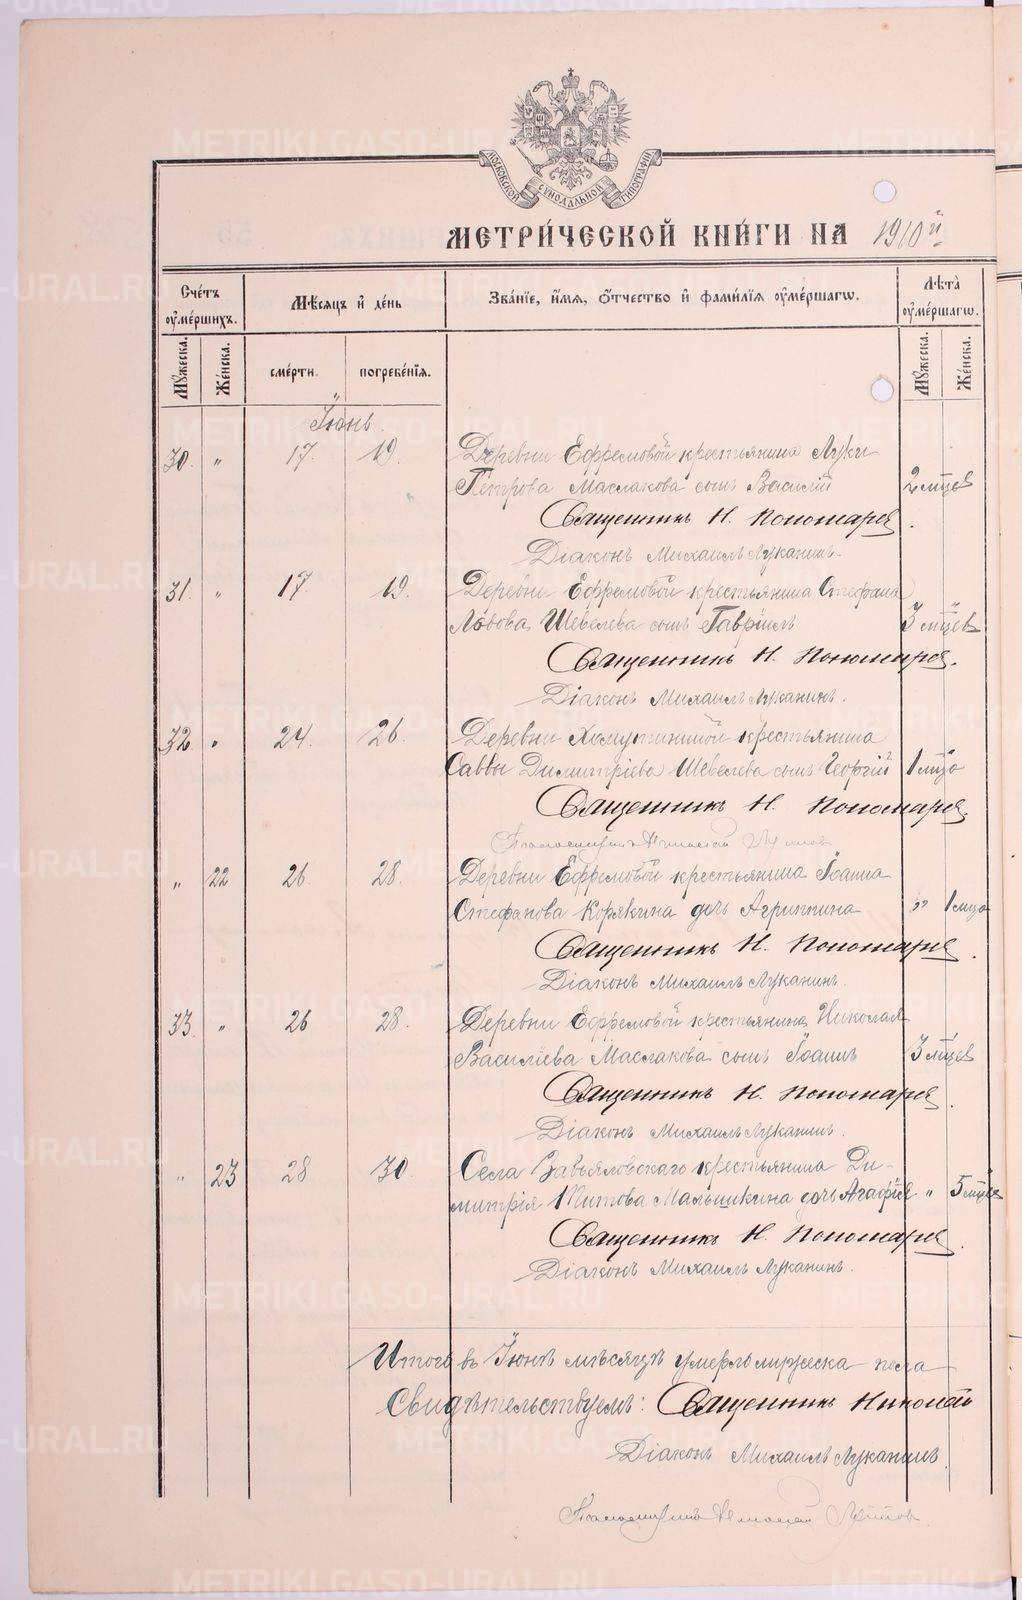 МОСКОВСКОЙ СѴНОДАЛЬНОЙ ТИПОГРАФІИ
МЕТРИ́ЧЕСКОЙ КНИ́ГИ НА 1910й
Сче́тъ ᲂу҆ме́ршихъ.
Мѣ́сяцъ и҆ де́нь
Зва́нїе, и҆́мѧ, ѻ҆́тчество и҆ фами́лїѧ ᲂу҆ме́ршагѡ.
Лѣ́та̀ ᲂу҆ме́ршагѡ.
Мꙋ́жеска.
Же́нска.
сме́рти.
погребе́нїѧ.
Мꙋ́жеска.
Же́нска.
Іюнь.
30. " 17. 19. Деревни Ефремовой крестьянина Луки
Петрова Маслакова сынъ Василій 2 мцев
Священникъ Н. Пономарев
Діаконъ Михаилъ Луканинъ.
31. " 17 19. Деревни Ефремовой крестьянина Стефана
Львова Шевелева сынъ Гавріилъ 3 мцев
Священникъ Н. Пономарев.
Діаконъ Михаилъ Луканинъ.
32 " 24. 26. Деревни Хомутининой крестьянина
Саввы Димитріева Шевелева сынъ Георгій 1 мца
Священникъ Н. Пономарев.
Псаломщикъ
" 22 26 28. Деревни Ефремовой крестьянина Іоанна
Стефанова Корякина дочь Агриппина " 1 мца
Священникъ Н. Пономарев.
Діаконъ Михаилъ Луканинъ.
33 " 26 28. Деревни Ефремовой крестьянина Николая
Василіева Маслакова сынъ Іоаннъ 3 мцев
Священникъ Н. Пономарев.
Діаконъ Михаилъ Луканинъ.
" 23 28 30. Села Завьяловскаго крестьянина Ди-
митрія Титова Малышкина дочь Агафія " 5 мцев
Священникъ Н. Пономарев.
Діаконъ Михаилъ Луканинъ.
Итого въ Іюнѣ мѣсяцѣ умерло мужеска пола
Свидѣтельствуемъ: Священникъ Николай
Діаконъ Михаилъ Луканинъ.
Псаломщикъ
METRIKI.GASO-URAL.RU